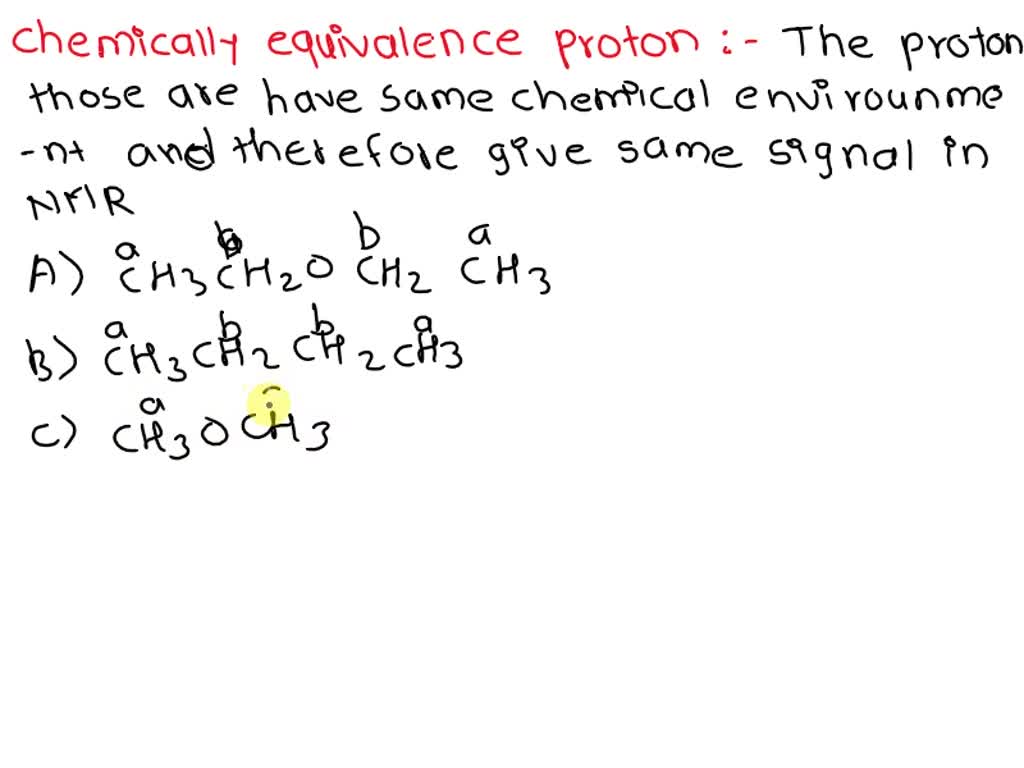 chemically equivalence proton :- The proton
those are have same chemical envirounme
-nt and therefore give same signal in
NMR
a b b a
A) CH3CH2O CH2 CH3
a b b a
B) CH3CH2CH2CH3
a
C) CH3OCH3